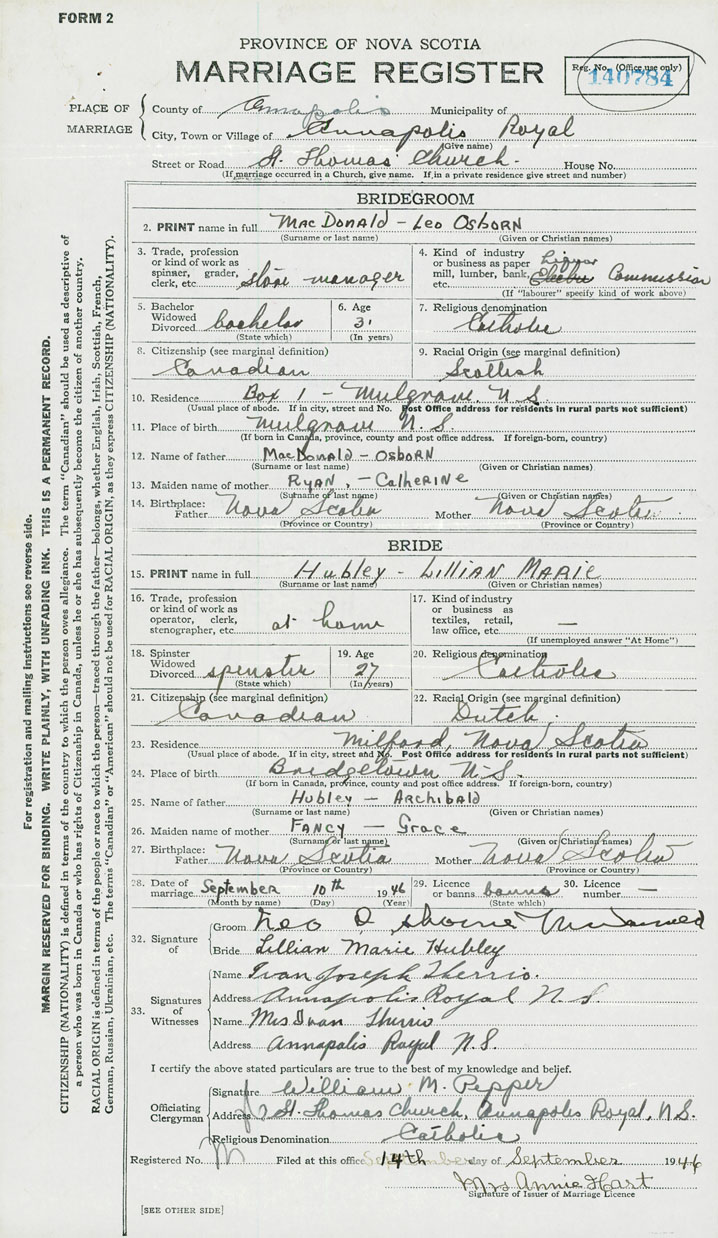 FORM 2
PROVINCE OF NOVA SCOTIA
MARRIAGE REGISTER
Reg. No. (Office use only)
140784
PLACE OF MARRIAGE
County of Annapolis Municipality of
City, Town or Village of Annapolis Royal
(Give name)
Street or Road St. Thomas Church. House No.
(If marriage occurred in a Church, give name. If in a private residence give street and number)
BRIDEGROOM
2. PRINT name in full MacDonald - Leo Osborn
(Surname or last name) (Given or Christian names)
3. Trade, profession or kind of work as spinner, grader, clerk, etc. store manager
4. Kind of industry or business as paper mill, lumber, bank, etc. Liquor Commission
(If "labourer" specify kind of work above)
5. Bachelor Widowed Divorced bachelor
(State which)
6. Age 31
(In years)
7. Religious denomination Catholic
8. Citizenship (see marginal definition) Canadian
9. Racial Origin (see marginal definition) Scottish
10. Residence Box 1 - Mulgrave, N.S.
(Usual place of abode. If in city, street and No. Post Office address for residents in rural parts not sufficient)
11. Place of birth Mulgrave N.S.
(If born in Canada, province, county and post office address. If foreign-born, country)
12. Name of father MacDonald - Osborn
(Surname or last name) (Given or Christian names)
13. Maiden name of mother Ryan, - Catherine
(Surname or last name) (Given or Christian names)
14. Birthplace: Father Nova Scotia Mother Nova Scotia
(Province or Country) (Province or Country)
BRIDE
15. PRINT name in full Hubley - Lillian Marie
(Surname or last name) (Given or Christian names)
16. Trade, profession or kind of work as operator, clerk, stenographer, etc. at home
17. Kind of industry or business as textiles, retail, law office, etc. —
(If unemployed answer "At Home")
18. Spinster Widowed Divorced spinster
(State which)
19. Age 27
(In years)
20. Religious denomination Catholic
21. Citizenship (see marginal definition) Canadian
22. Racial Origin (see marginal definition) Dutch.
23. Residence Milford, Nova Scotia
(Usual place of abode. If in city, street and No. Post Office address for residents in rural parts not sufficient)
24. Place of birth Bridgetown N.S.
(If born in Canada, province, county and post office address. If foreign-born, country)
25. Name of father Hubley - Archibald
(Surname or last name) (Given or Christian names)
26. Maiden name of mother Fancy - Grace
(Surname or last name) (Given or Christian names)
27. Birthplace: Father Nova Scotia Mother Nova Scotia
(Province or Country) (Province or Country)
28. Date of marriage September 10th 1946
(Month by name) (Day) (Year)
29. Licence or banns banns
(State which)
30. Licence number —
32. Signature of
Groom Leo O
Bride Lillian Marie Hubley
33. Signatures of Witnesses
Name Ivan Joseph
Address Annapolis Royal N.S.
Name Mrs Ivan
Address Annapolis Royal N.S.
I certify the above stated particulars are true to the best of my knowledge and belief.
Officiating Clergyman
Signature William M. Pepper
Address St. Thomas Church, Annapolis Royal, N.S.
Religious Denomination Catholic
Registered No. Filed at this office 14th day of September 1946
Mrs Annie Hart
Signature of Issuer of Marriage Licence
[SEE OTHER SIDE]
For registration and mailing instructions see reverse side.
MARGIN RESERVED FOR BINDING. WRITE PLAINLY, WITH UNFADING INK. THIS IS A PERMANENT RECORD.
CITIZENSHIP (NATIONALITY) is defined in terms of the country to which the person owes allegiance. The term "Canadian" should be used as descriptive of
a person who was born in Canada or who has rights of Citizenship in Canada, unless he or she has subsequently become the citizen of another country.
RACIAL ORIGIN is defined in terms of the people or race to which the person—traced through the father—belongs, whether English, Irish, Scottish, French,
German, Russian, Ukrainian, etc. The terms "Canadian" or "American" should not be used for RACIAL ORIGIN, as they express CITIZENSHIP (NATIONALITY).